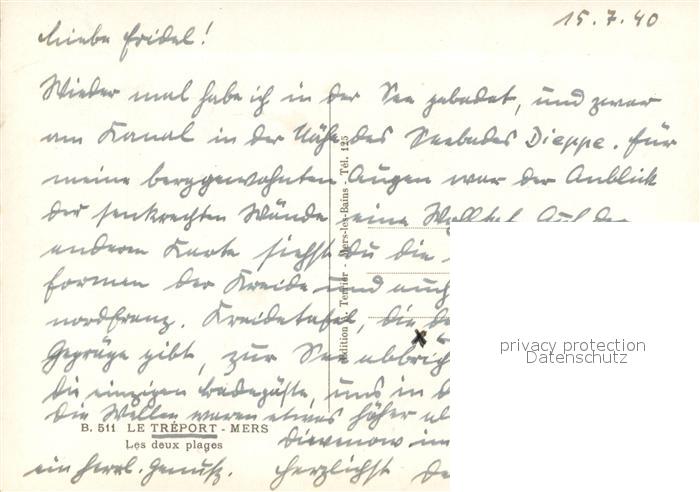 15.7.40
Liebe Fridel!
Wieder mal habe ich in der See gebadet, und zwar
am Kanal in der Nähe des Seebades Dieppe. Für
meine berggewohnten Augen war der Anblick
der senkrechten Wände eine Wohltat. Auf der
anderen Karte siehst du die
Formen der Kreide und auch
nordfranz. Kreidetafel, die
Gepräge gibt, zur See abbricht
die einzigen Badegäste, uns in
Die Wellen waren etwas höher
Dievenow im
ein herrl. Genuß. Herzlichst
B. 511 LE TRÉPORT - MERS
Les deux plages
Edition A. Terrier - Mers-les-Bains - Tél. 125
privacy protection
Datenschutz